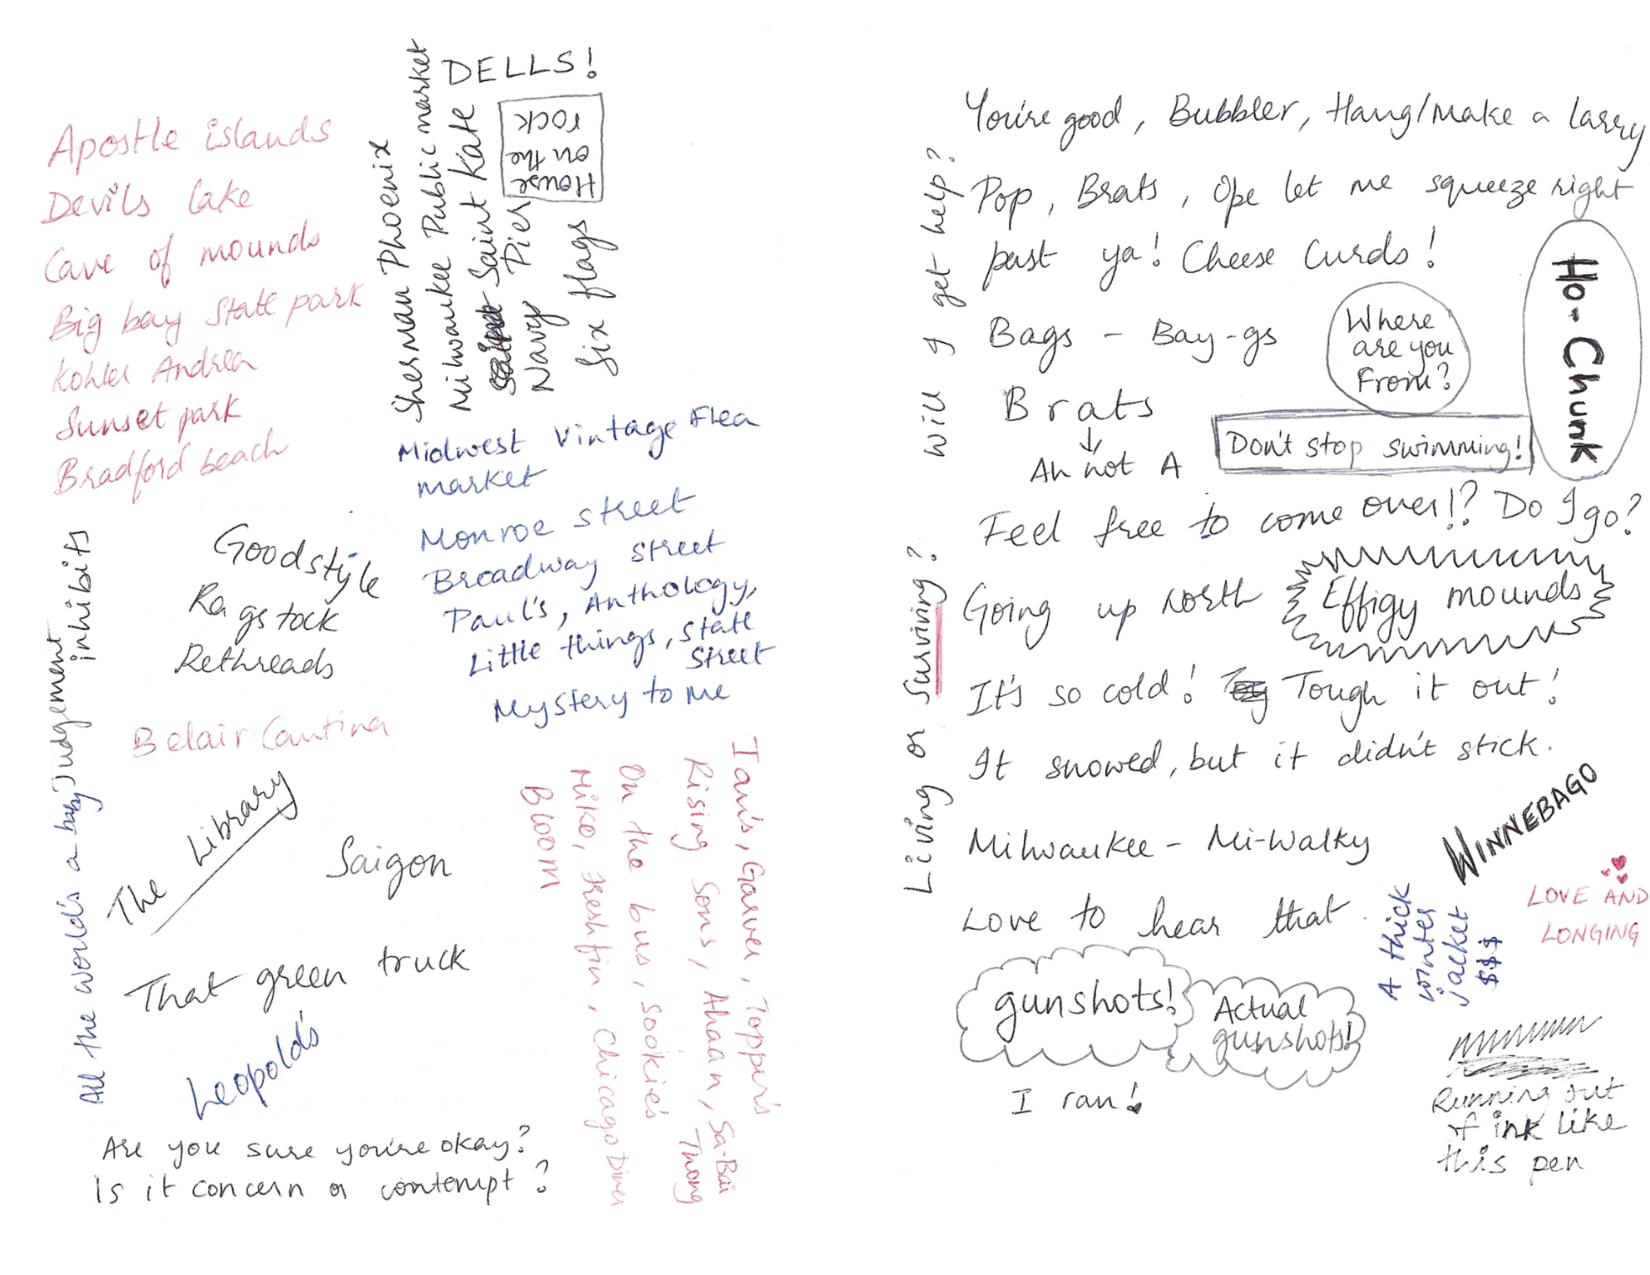 Apostle islands
Devils lake
Cave of mounds
Big bay state park
Kohler Andrea
Sunset park
Bradford beach
Sherman Phoenix
Milwaukee Public market
Saint Kate
Navy Pier
Six flags
DELLS!
House
on the
rock
Midwest Vintage Flea
market
Monroe street
Broadway street
Paul's, Anthology,
Little things, State
Street
Mystery to me
Goodstyle
Ragstock
Rethreads
Belair Cantina
The Library
Saigon
That green truck
Leopold's
All the world's a baby Judgement
inhibits
Ian's, Garver, Topper's
Rising Sons, Ahaan, Sa-Bai
Thong
On the bus, Sookie's
Mike, Freshfin, Chicago Diner
Bloom
Are you sure you're okay?
Is it concern or contempt?
Will I get help?
Living or Surviving?
You're good, Bubbler, Hang/Make a larry
Pop, Brats, Ope let me squeeze right
past ya! Cheese Curds!
Bags - Bay-gs
Where
are you
From?
Ho-Chunk
Brats
↓
Ah not A
Don't stop swimming!
Feel free to come over!? Do I go?
Going up north
Effigy mounds
It's so cold! Tough it out!
It snowed, but it didn't stick.
Milwaukee - Mi-Walky
WINNEBAGO
Love to hear that.
A thick
winter
jacket
$$$
LOVE AND
LONGING
gunshots!
Actual
gunshots!
I ran!
Running out
of ink like
this pen